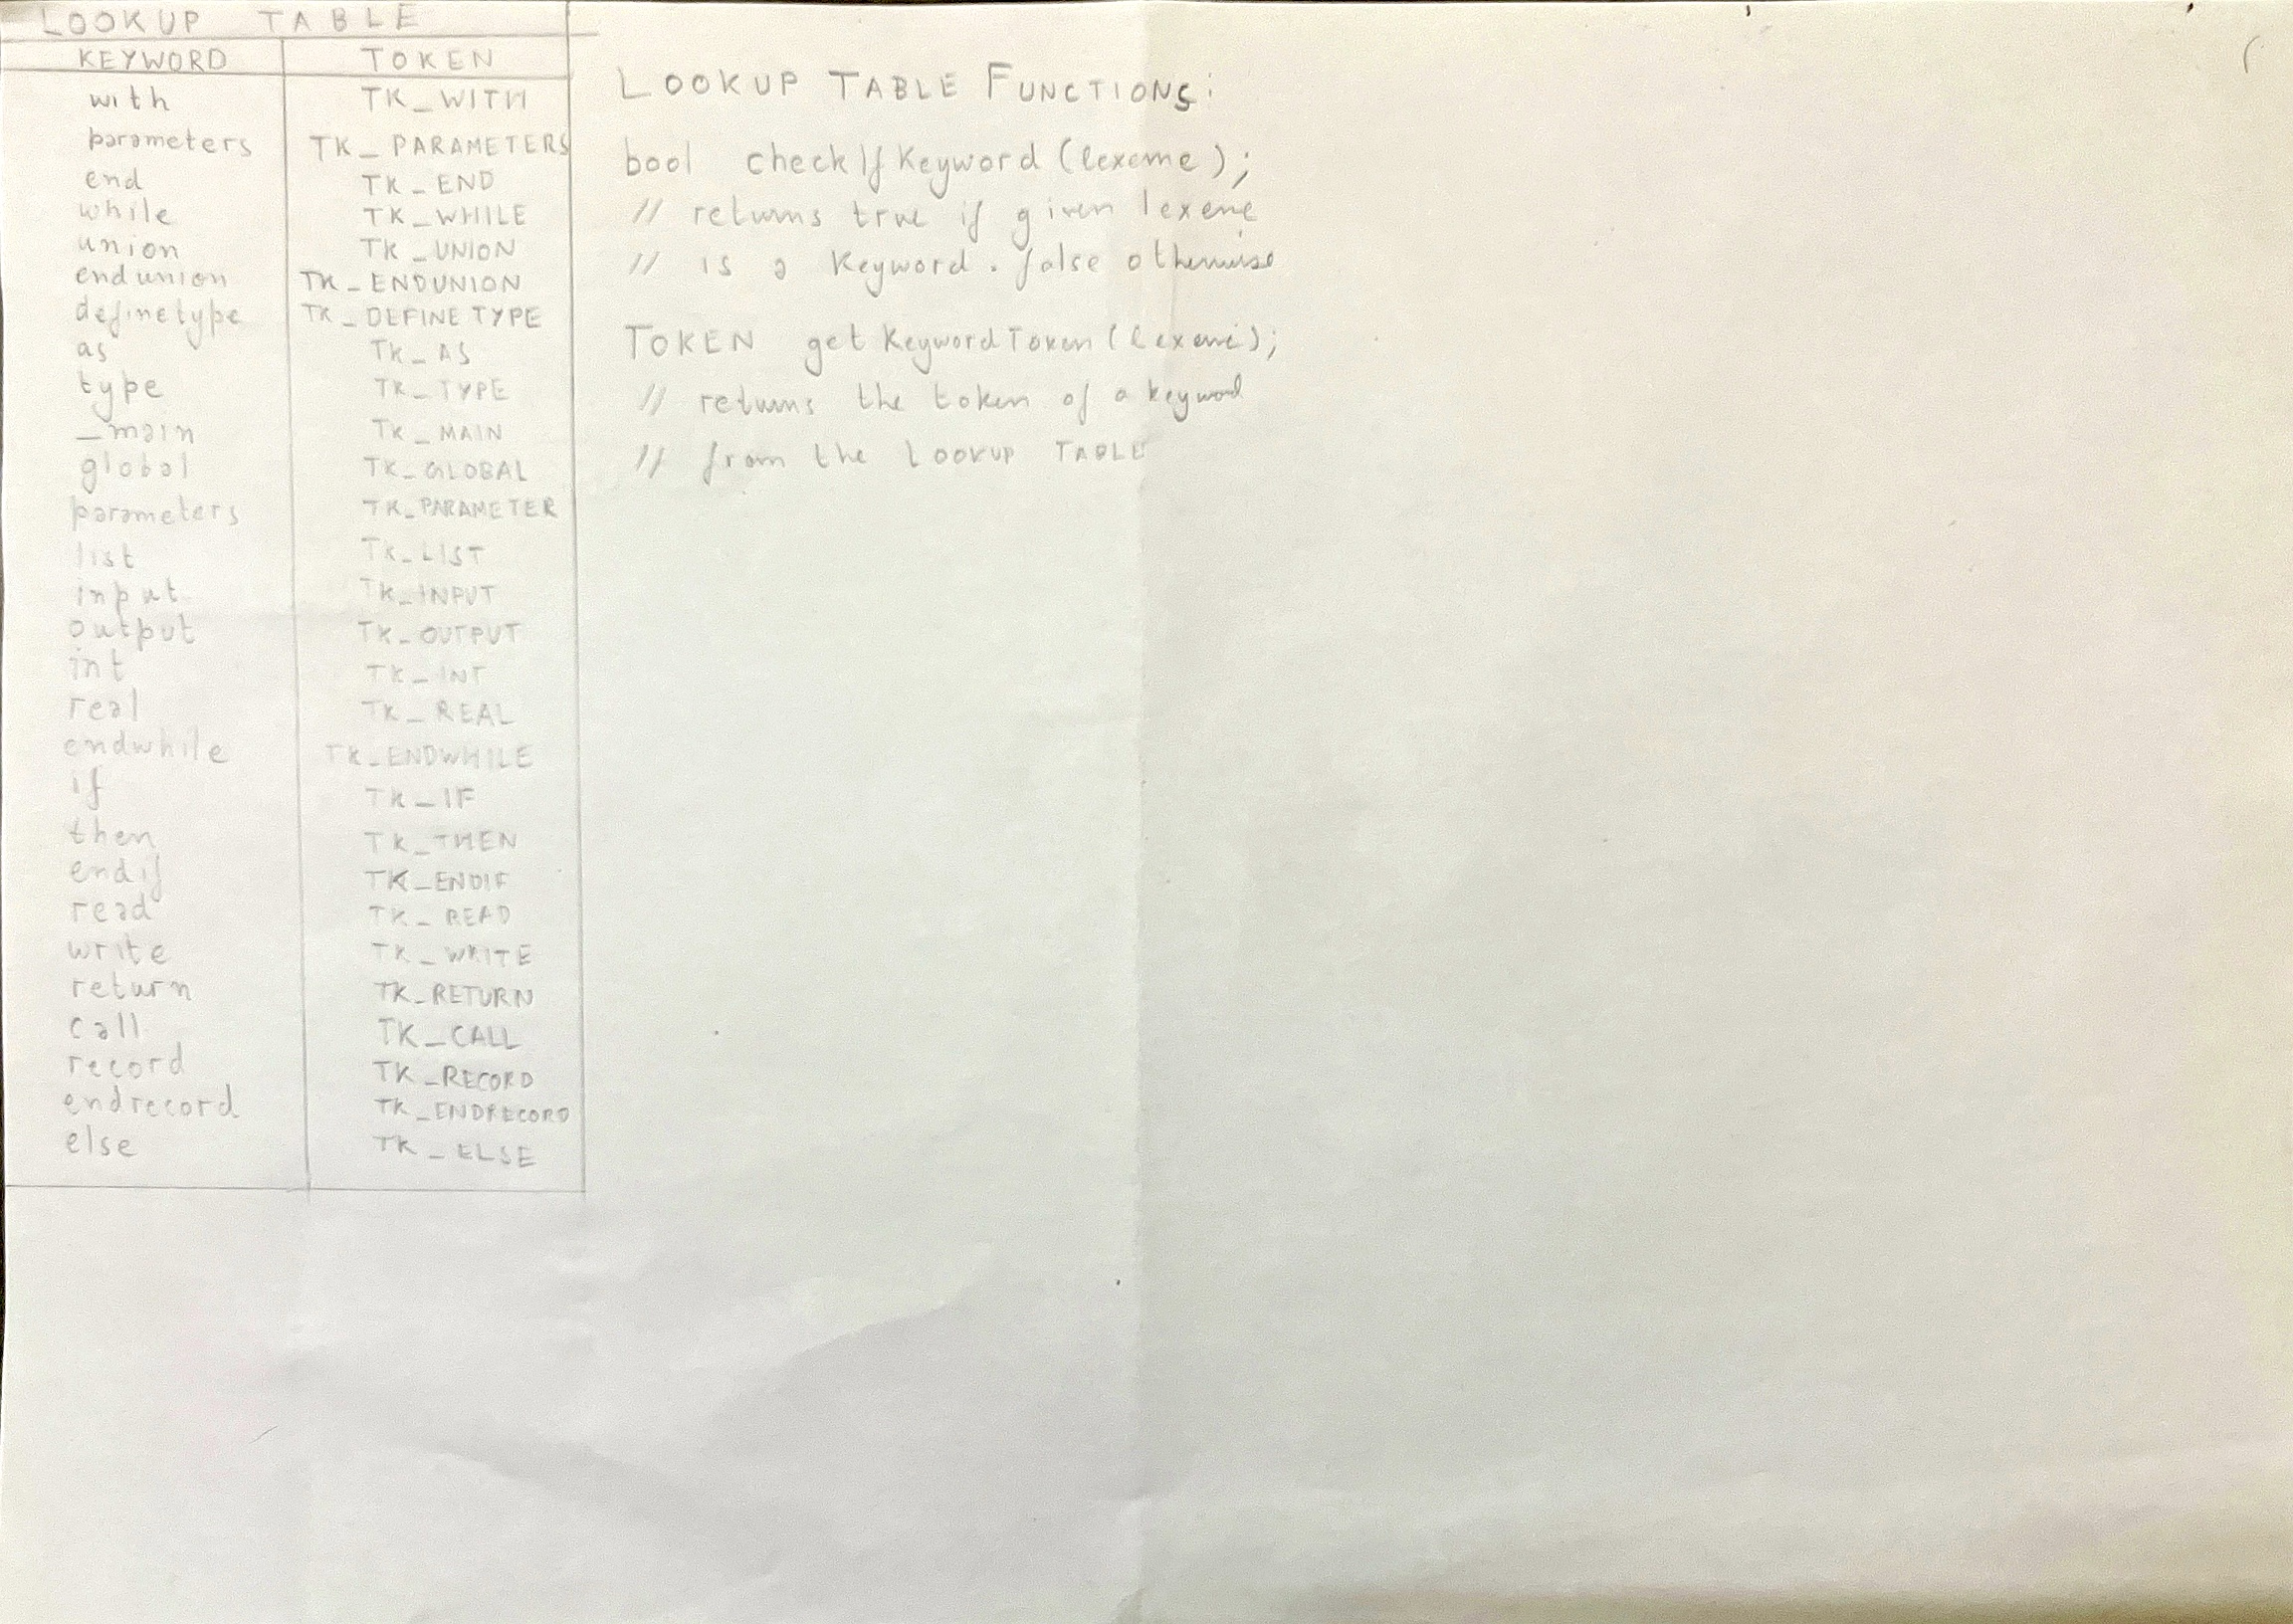 LOOKUP TABLE
KEYWORD TOKEN
with TK_WITH
parameters TK_PARAMETERS
end TK_END
while TK_WHILE
union TK_UNION
endunion TK_ENDUNION
definetype TK_DEFINETYPE
as TK_AS
type TK_TYPE
_main TK_MAIN
global TK_GLOBAL
parameters TK_PARAMETER
list TK_LIST
input TK_INPUT
output TK_OUTPUT
int TK_INT
real TK_REAL
endwhile TK_ENDWHILE
if TK_IF
then TK_THEN
endif TK_ENDIF
read TK_READ
write TK_WRITE
return TK_RETURN
call TK_CALL
record TK_RECORD
endrecord TK_ENDRECORD
else TK_ELSE
LOOKUP TABLE FUNCTIONS:
bool checkIfKeyword (lexeme);
// returns true if given lexeme
// is a keyword. false otherwise
TOKEN getKeywordToken (lexeme);
// returns the token of a keyword
// from the LOOKUP TABLE